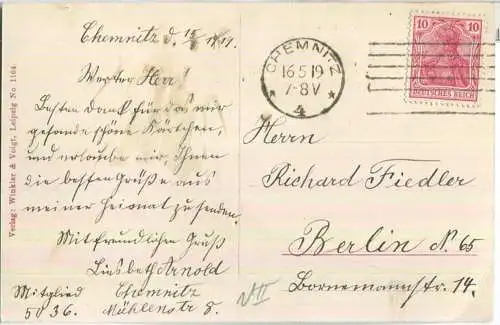 Chemnitz d. 15/5 1919.
Werter Herr!
Besten Dank für das mir
gesandte schöne Kärtchen,
und erlaube mir, Ihnen
die besten Grüße aus
meiner Heimat zu senden.
Mit freundlichen Gruß
Liesbeth Arnold
Mitglied Chemnitz
5036. Mühlenstr 8.
Verlag: Winkler & Voigt, Leipzig No. 1164.
CHEMNITZ
16.5.19
7-8V
* 4 *
10 10
DEUTSCHES REICH
Herrn
Richard Fiedler
Berlin N. 65
Bornemannstr. 14.